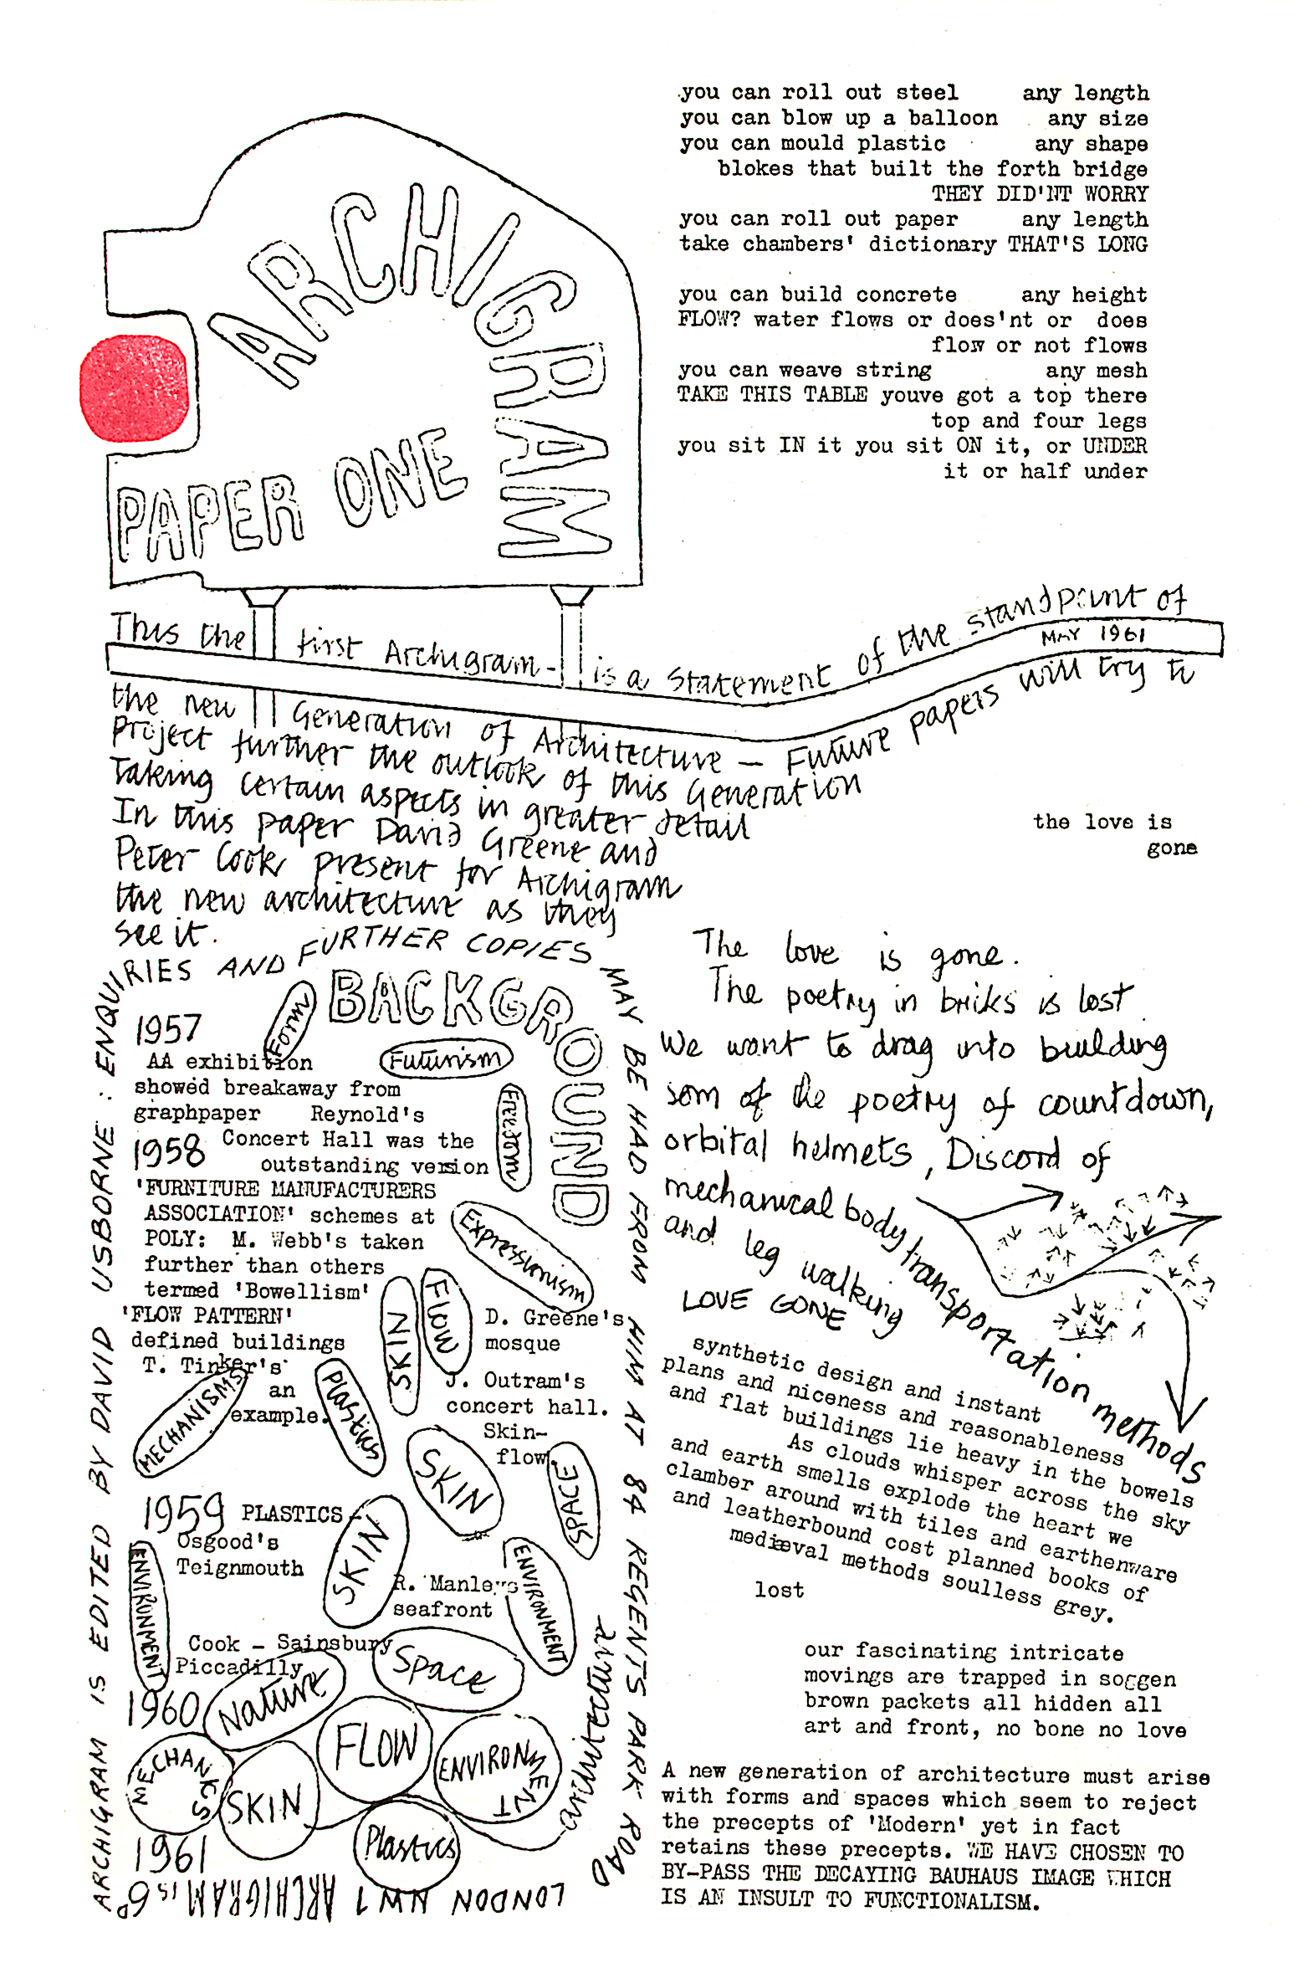 ARCHIGRAM
PAPER ONE
you can roll out steel any length
you can blow up a balloon any size
you can mould plastic any shape
blokes that built the forth bridge
THEY DID'NT WORRY
you can roll out paper any length
take chambers' dictionary THAT'S LONG
you can build concrete any height
FLOW? water flows or does'nt or does
flow or not flows
you can weave string any mesh
TAKE THIS TABLE youve got a top there
top and four legs
you sit IN it you sit ON it, or UNDER
it or half under
This the first Archigram - is a statement of the standpoint of
MAY 1961
the new Generation of Architecture — Future papers will try to
Project further the outlook of this Generation
Taking certain aspects in greater detail
In this paper David Greene and
Peter Cook present for Archigram
the new architecture as they
see it.
the love is
gone
ARCHIGRAM IS EDITED BY DAVID USBORNE : ENQUIRIES AND FURTHER COPIES MAY BE HAD FROM HIM AT 84 REGENTS PARK ROAD LONDON NW1 ARCHIGRAM IS 6d
BACKGROUND
Form
1957
Futurism
AA exhibition
showed breakaway from
graphpaper Reynold's
Freedom
1958 Concert Hall was the
outstanding version
'FURNITURE MANUFACTURERS
ASSOCIATION' schemes at
POLY: M. Webb's taken
further than others
termed 'Bowellism'
Expressionism
'FLOW PATTERN'
defined buildings
T. Tinker's
an
example.
SKIN
FLOW
D. Greene's
mosque
MECHANISMS
Plastics
J. Outram's
concert hall.
Skin-
flow.
SKIN
SPACE
1959 PLASTICS-
Osgood's
Teignmouth
SKIN
ENVIRONMENT
R. Manleys
seafront
ENVIRONMENT
Cook - Sainsbury
Piccadilly
Space
1960
Nature
FLOW
MECHANICS
SKIN
ENVIRONMENT
architecture
Plastics
1961
The love is gone.
The poetry in briks is lost.
We want to drag into building
som of the poetry of countdown,
orbital helmets, Discord of
mechanical body transportation methods
and leg walking
LOVE GONE
synthetic design and instant
plans and niceness and reasonableness
and flat buildings lie heavy in the bowels
As clouds whisper across the sky
and earth smells explode the heart we
clamber around with tiles and earthenware
and leatherbound cost planned books of
mediæval methods soulless grey.
lost
our fascinating intricate
movings are trapped in soggen
brown packets all hidden all
art and front, no bone no love
A new generation of architecture must arise
with forms and spaces which seem to reject
the precepts of 'Modern' yet in fact
retains these precepts. WE HAVE CHOSEN TO
BY-PASS THE DECAYING BAUHAUS IMAGE WHICH
IS AN INSULT TO FUNCTIONALISM.